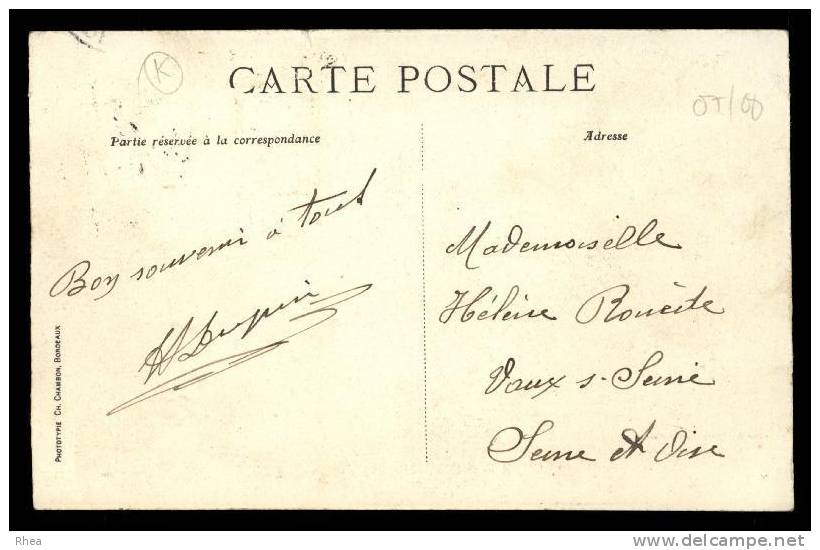 K
CARTE POSTALE
Partie réservée à la correspondance
Adresse
Bon souvenir à tous
Mademoiselle
Hélène
Vaux s- Seine
Seine et Oise
PHOTOTYPIE CH. CHAMBON, BORDEAUX
Rhea
delcampe.net